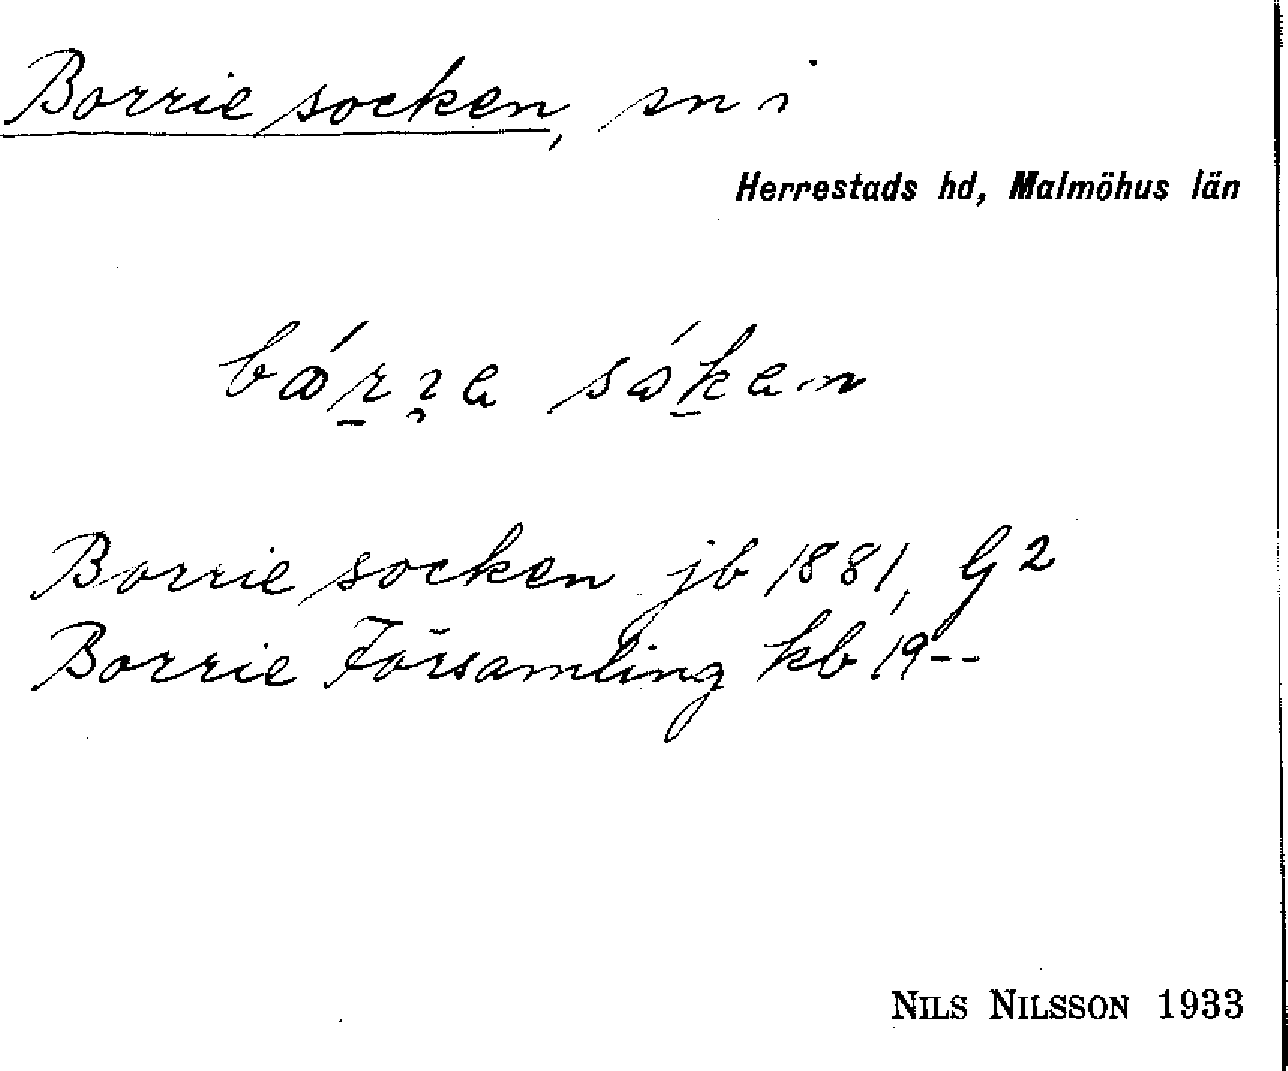 Borrie socken, sn i
Herrestads hd, Malmöhus län
Borrie socken jb 1881, G 2
Borrie Församling kb 19--
NILS NILSSON 1933